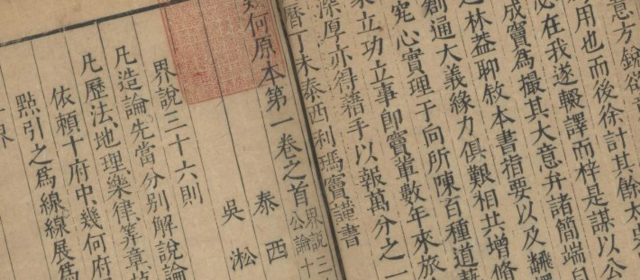 意方銳
用也而後徐計其餘太
必在我遂輟譯而梓是謀以公
成竇爲撮其大意弁諸簡端自
之林葢聊敘本書指要以及翻
創通大義緣力俱艱相共增修
究心實理于向所陳百種道藝
家立功立事即竇輩數年來旅
深厚亦得藉手以報萬分之一
曆丁未泰西利瑪竇謹書
幾何原本第一卷之首
界說三
公論十
泰西
吳淞
界說三十六則
凡造論先當分別解說論
凡歷法地理樂律筭章
依賴十府中幾何府
點引之爲線線展爲
界